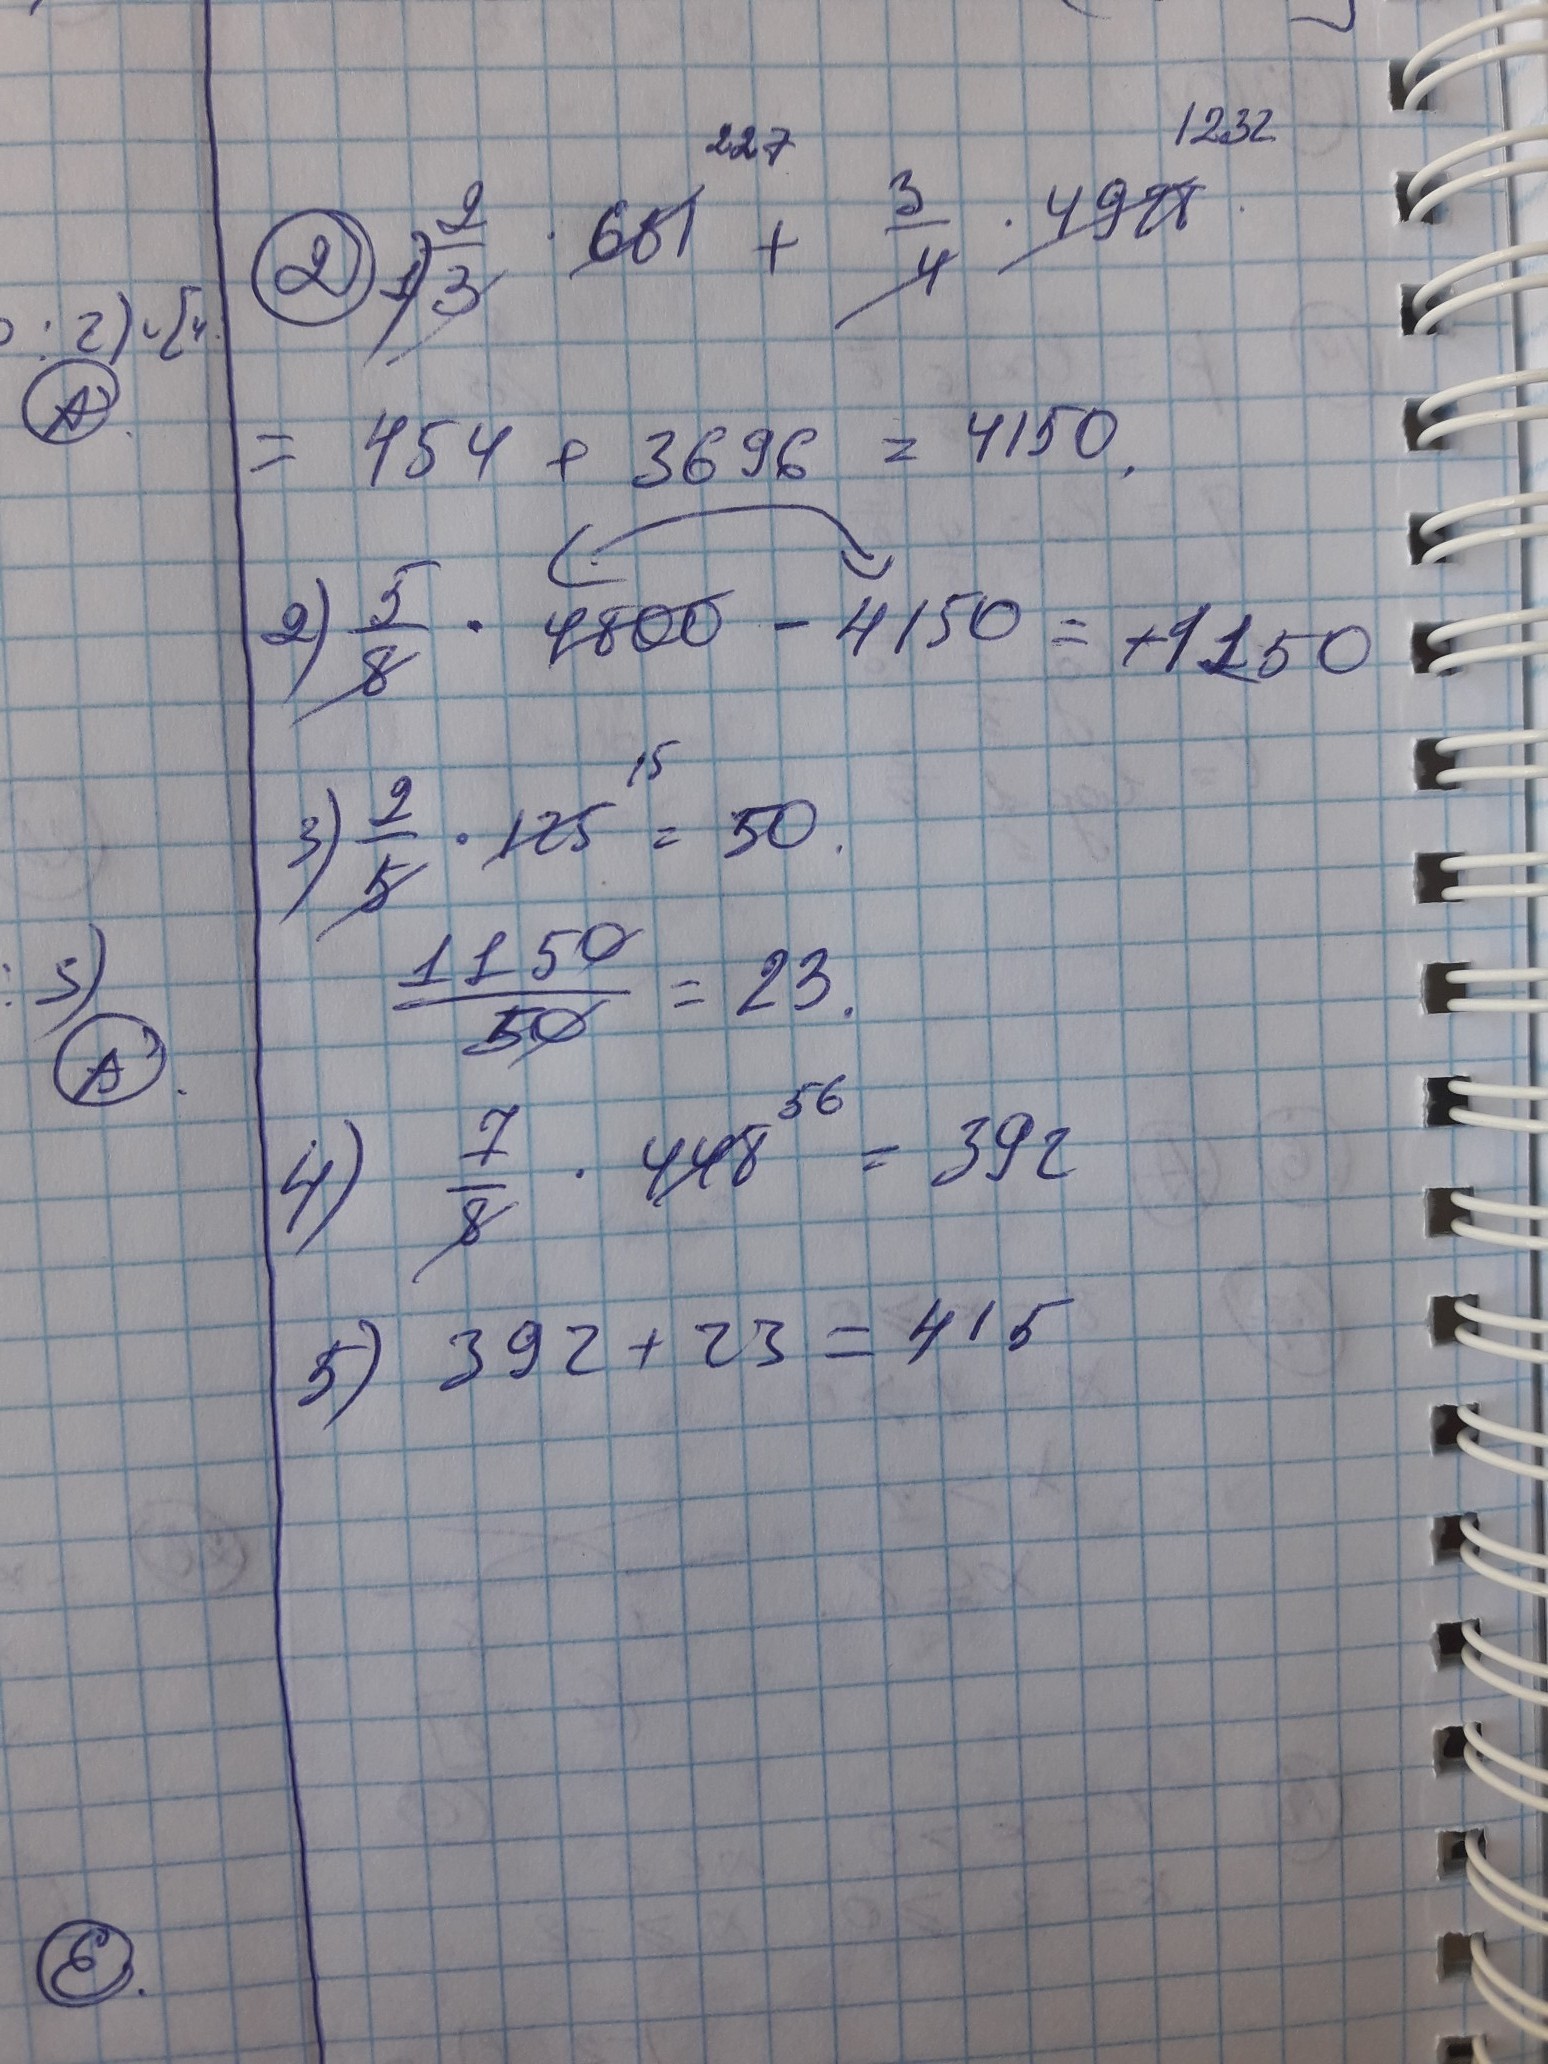 227 1232
2 1) 2/3 · 681 + 3/4 · 4928
: 2)
A
= 454 + 3696 = 4150.
2) 5/8 · 4800 - 4150 = +1150
3) 2/5 · 125 15 = 50.
1150/50 = 23.
: 5)
A
4) 7/8 · 448 56 = 392
5) 392 + 23 = 415
E.